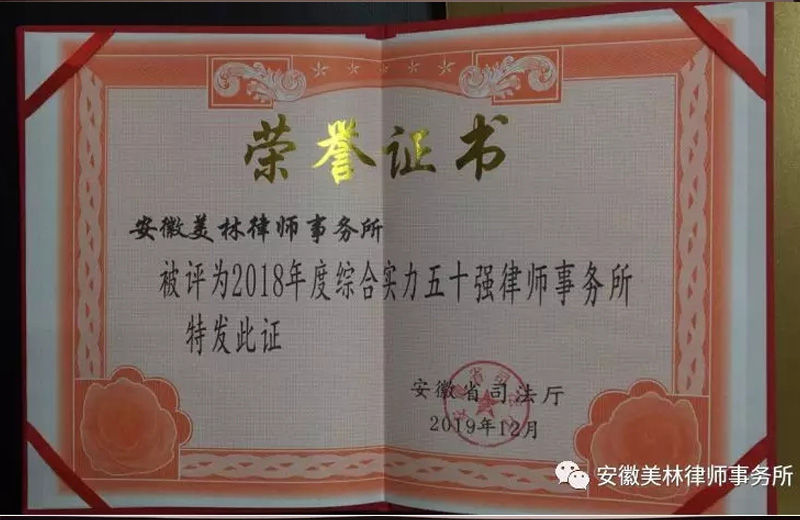 荣誉证书
安徽美林律师事务所
被评为2018年度综合实力五十强律师事务所
特发此证
安徽省司法厅
2019年12月
安徽美林律师事务所